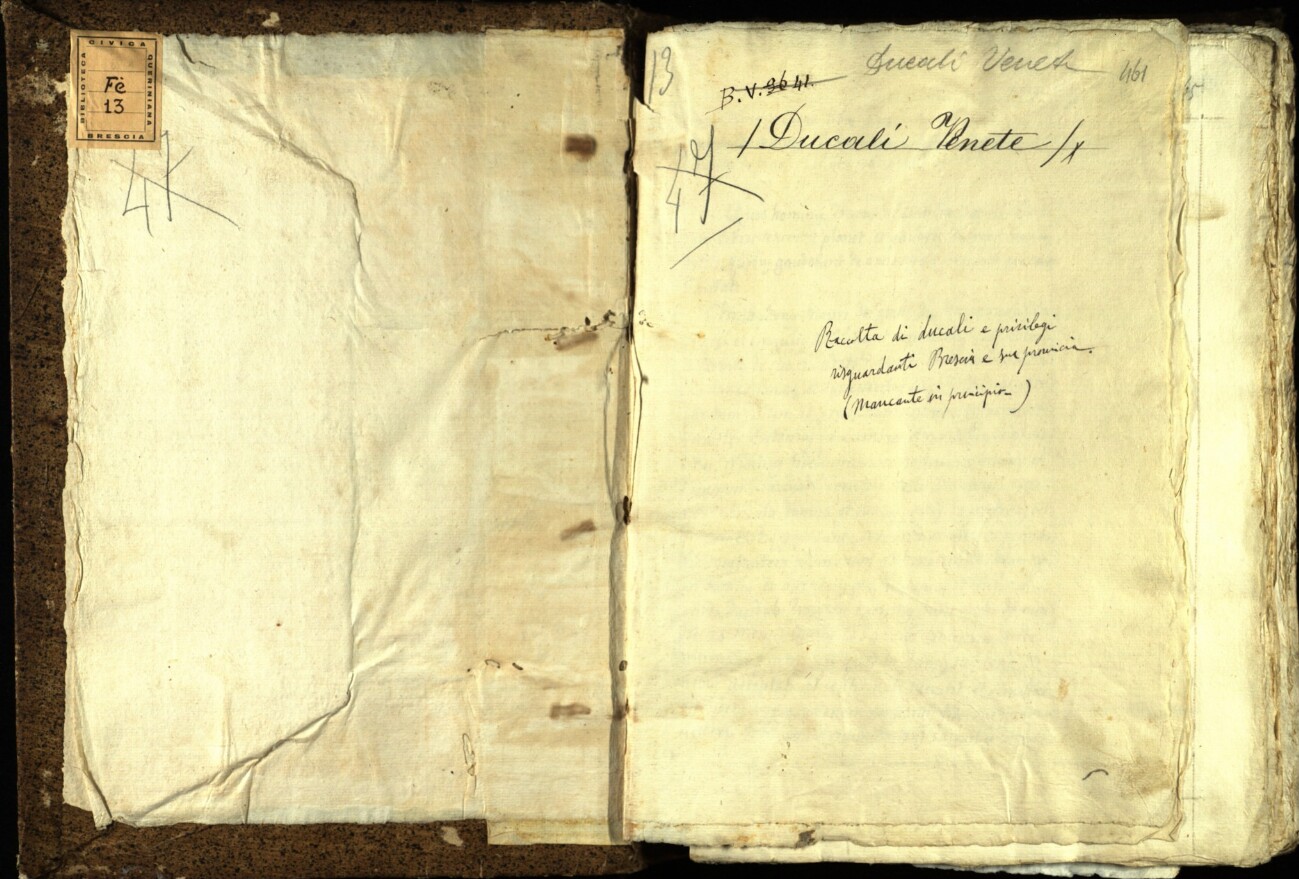 CIVICA
BIBLIOTECA
QUERINIANA
Fè
13
BRESCIA
41
13
Ducali Venete
461
B.V. 41.
/Ducali Venete/
47
Raccolta di ducali e privilegi
risguardanti Brescia e sua provincia.
(Mancante in principio)